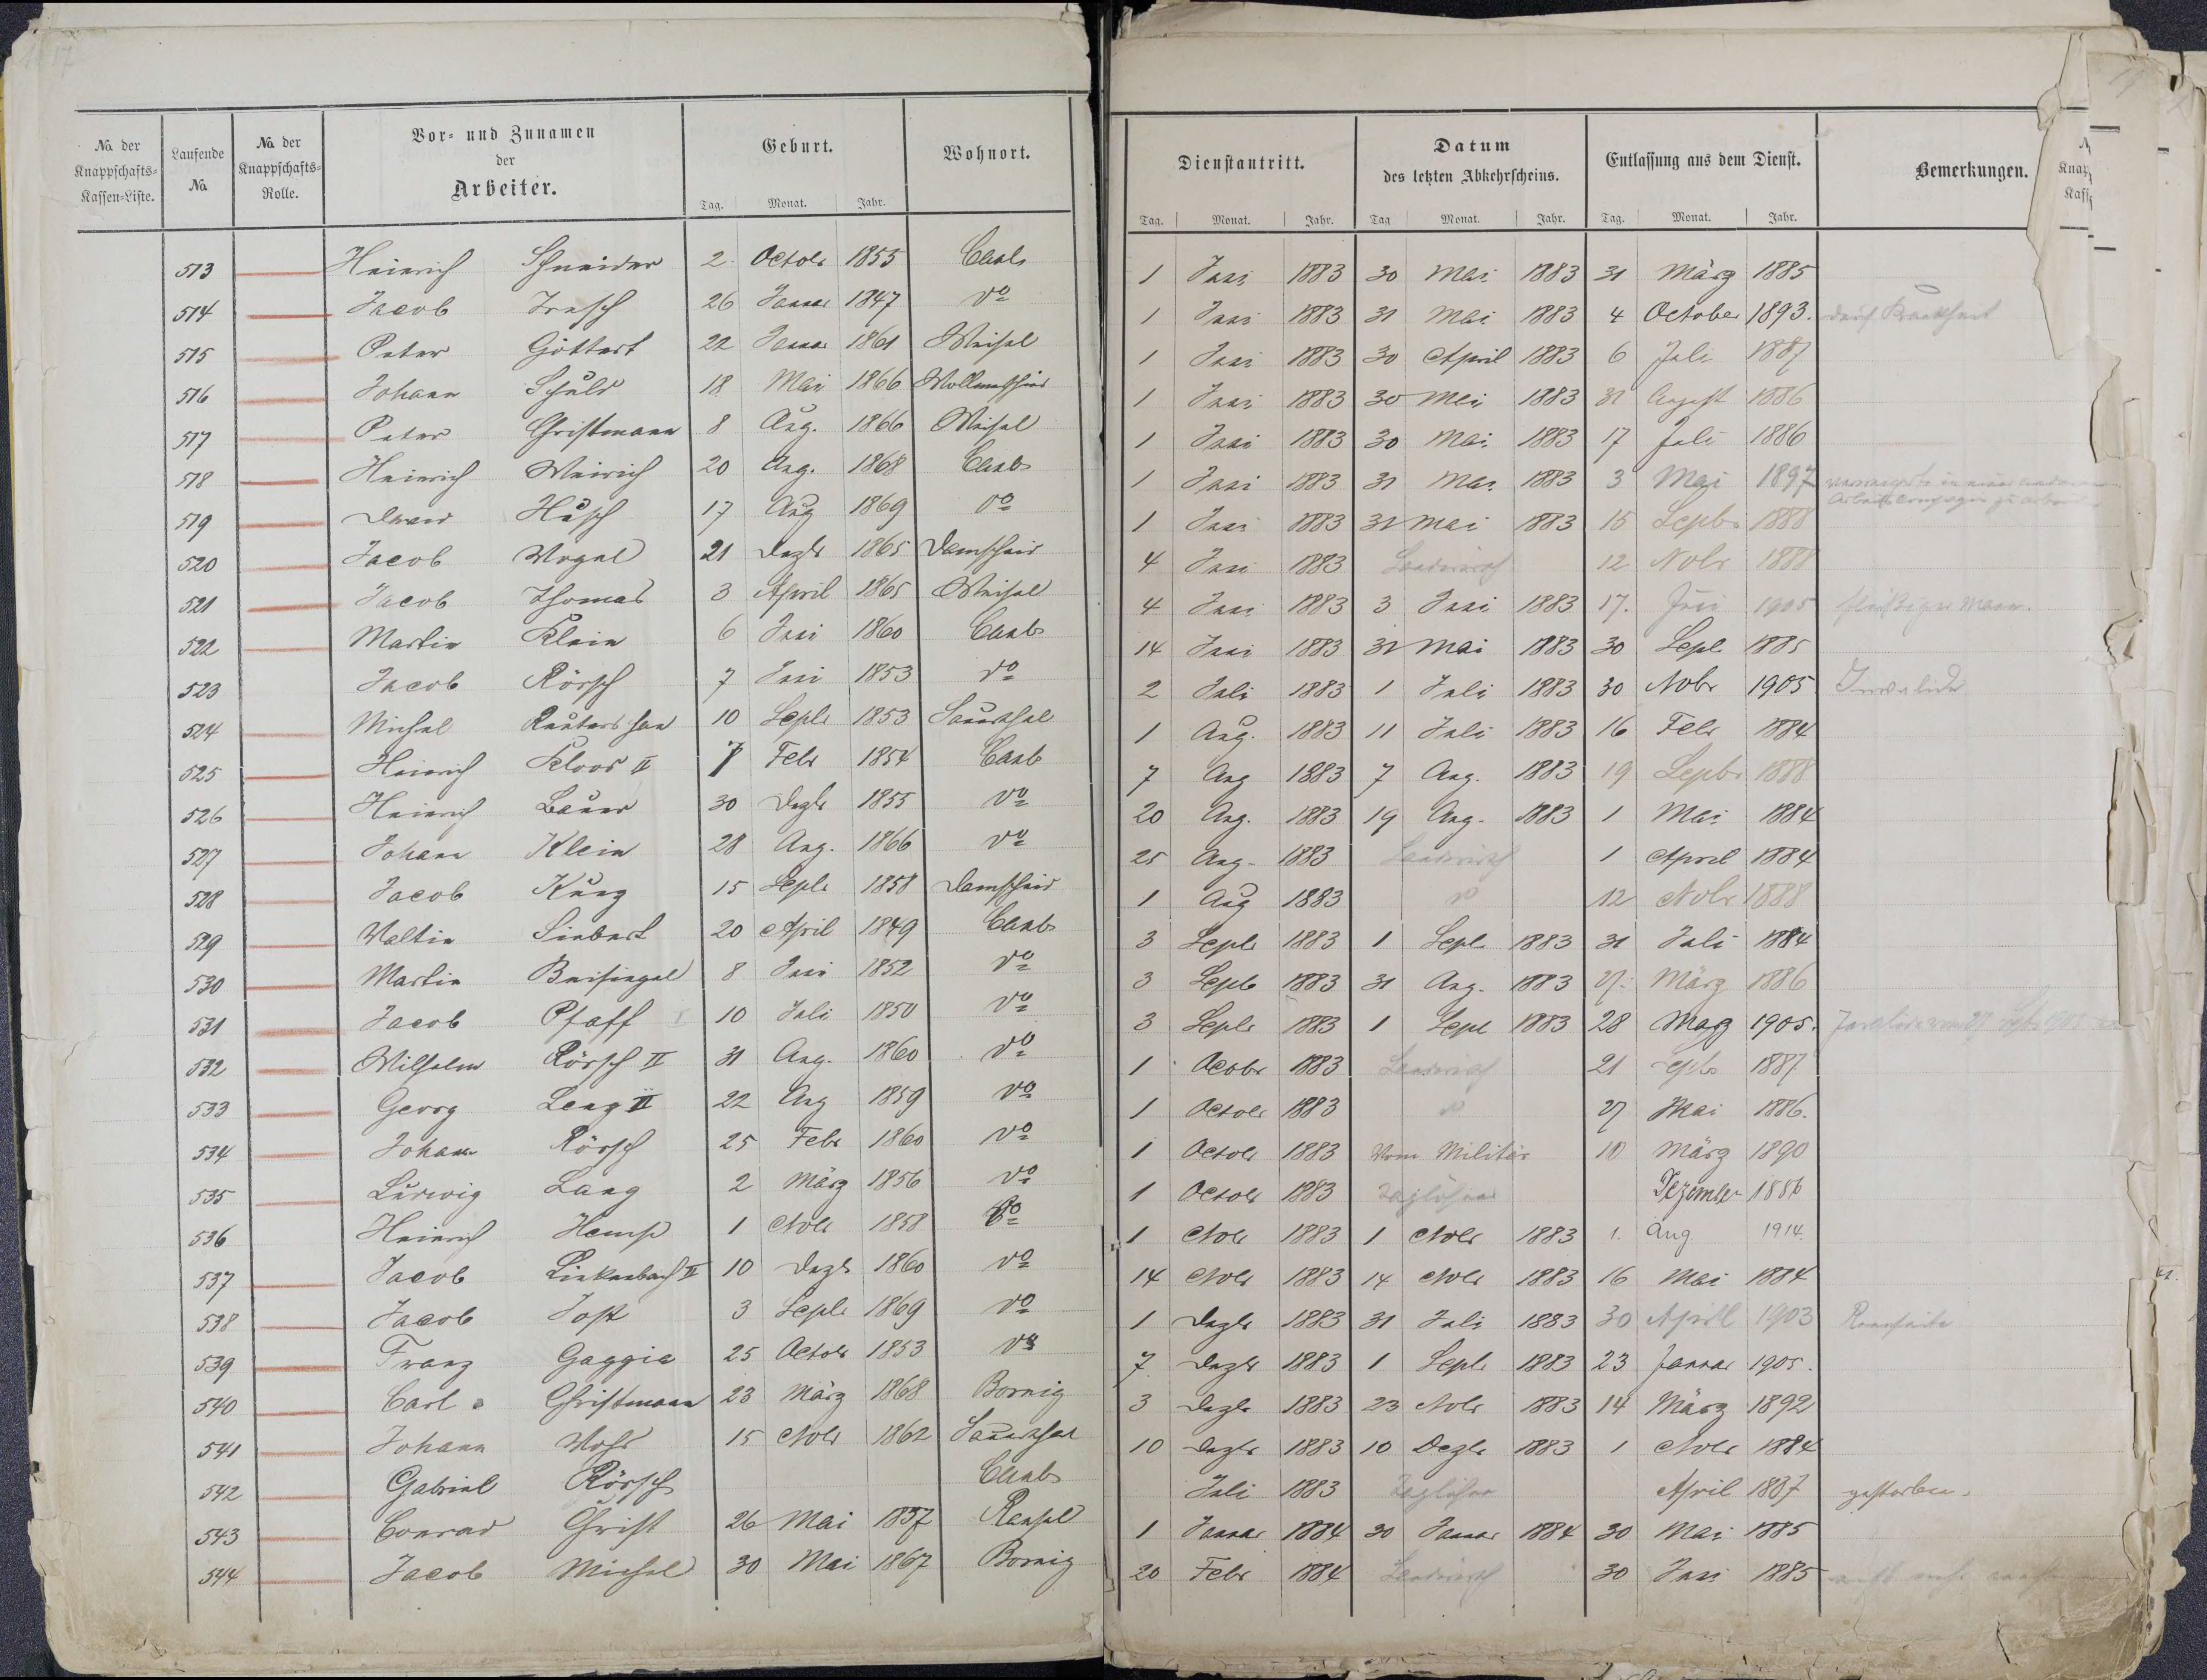 17
No. der Knappschafts-Kassen-Liste. Laufende No. No. der Knappschafts-Rolle. Vor- und Zunamen der Arbeiter. Geburt. Tag. Monat. Jahr. Wohnort.
Dienstantritt. Tag. Monat. Jahr. Datum des letzten Abkehrscheins. Tag Monat. Jahr. Entlassung aus dem Dienst. Tag. Monat. Jahr. Bemerkungen.
513 Heinrich Schneider 2 Octobr 1855 Caub 1 Juni 1883 30 Mai 1883 31 März 1885
514 Jacob 26 Januar 1847 do 1 Juni 1883 31 Mai 1883 4 October 1893. durch Krankheit
515 Peter Göttert 22 Januar 1861 Weisel 1 Juni 1883 30 April 1883 6 Juli 1887
516 Johann Schuld 18 Mai 1866 1 Juni 1883 30 Mai 1883 31 August 1886
517 Peter Christmann 8 Aug. 1866 Weisel 1 Juni 1883 30 Mai 1883 17 Juli 1886
518 Heinrich Weirich 20 Aug. 1868 Caub 1 Juni 1883 31 Mai 1883 3 Mai 1897
519 Husch 17 Aug 1869 do 1 Juni 1883 31 Mai 1883 15 Septbr 1888
520 Jacob Vogel 21 Dezbr 1865 Damscheid 4 Juni 1883 Landwirth 12 Nobr 1888
521 Jacob Thomas 3 April 1865 Weisel 4 Juni 1883 3 Juni 1883 17. Juni 1905 fleißiger Mann.
522 Martin Klein 6 Juni 1860 Caub 14 Juni 1883 31 Mai 1883 30 Sept. 1885
523 Jacob Rörsch 7 Juni 1853 do 2 Juli 1883 1 Juli 1883 30 Nobr 1905 Invalide
524 Michel 10 Septr 1853 Sauerthal 1 Aug. 1883 11 Juli 1883 16 Febr 1884
525 Heinrich Kloos II 7 Febr 1854 Caub 7 Aug 1883 7 Aug. 1883 19 Septbr 1888
526 Heinrich Bauer 30 Dezbr 1855 do 20 Aug. 1883 19 Aug. 1883 1 Mai 1884
527 Johann Klein 28 Aug. 1866 do 25 Aug. 1883 Landwirth 1 April 1884
528 Jacob Kurz 15 Septr 1858 Damscheid 1 Aug 1883 do 12 Nobr 1888
529 Valtin Siebert 20 April 1849 Caub 3 Septr 1883 1 Sept. 1883 31 Juli 1884
530 Martin Beisiegel 8 Juni 1852 do 3 Septb 1883 31 Aug. 1883 27. März 1886
531 Jacob Pfaff I 10 Juli 1850 do 3 Septr 1883 1 Sept 1883 28 März 1905.
532 Wilhelm Rörsch II 31 Aug. 1860 do 1 Octobr 1883 Landwirth 21 Septbr 1887
533 Georg Lang II 22 Aug 1859 do 1 Octobr 1883 do 27 Mai 1886.
534 Johann Rörsch 25 Febr 1860 do 1 Octobr 1883 Vom Militär 10 März 1890
535 Ludwig Lang 2 März 1856 do 1 Octobr 1883 Taglöhner Dezember 1886
536 Heinrich Kemp 1 Nobr 1858 do 1 Nobr 1883 1 Nobr 1883 1. Aug 1914.
537 Jacob Linkenbach II 10 Dezbr 1860 do 14 Nobr 1883 14 Nobr 1883 16 Mai 1884
538 Jacob Jost 3 Septr 1869 do 1 Dezbr 1883 31 Juli 1883 30 April 1903
539 Franz Gaggia 25 Octobr 1853 do 7 Dezbr 1883 1 Septr 1883 23 Januar 1905.
540 Carl Christmann 23 März 1868 Bornig 3 Dezbr 1883 23 Nobr 1883 14 März 1892
541 Johann 15 Nobr 1862 Sauerthal 10 Dezbr 1883 10 Dezbr 1883 1 Nobr 1884
542 Gabriel Rörsch Caub Juli 1883 Taglöhner April 1887 gestorben.
543 Conrad Christ 26 Mai 1857 Ransel 1 Januar 1884 20 Januar 1884 30 Mai 1885
544 Jacob Michel 30 Mai 1867 Bornig 20 Febr 1884 Landwirth 30 Juni 1885